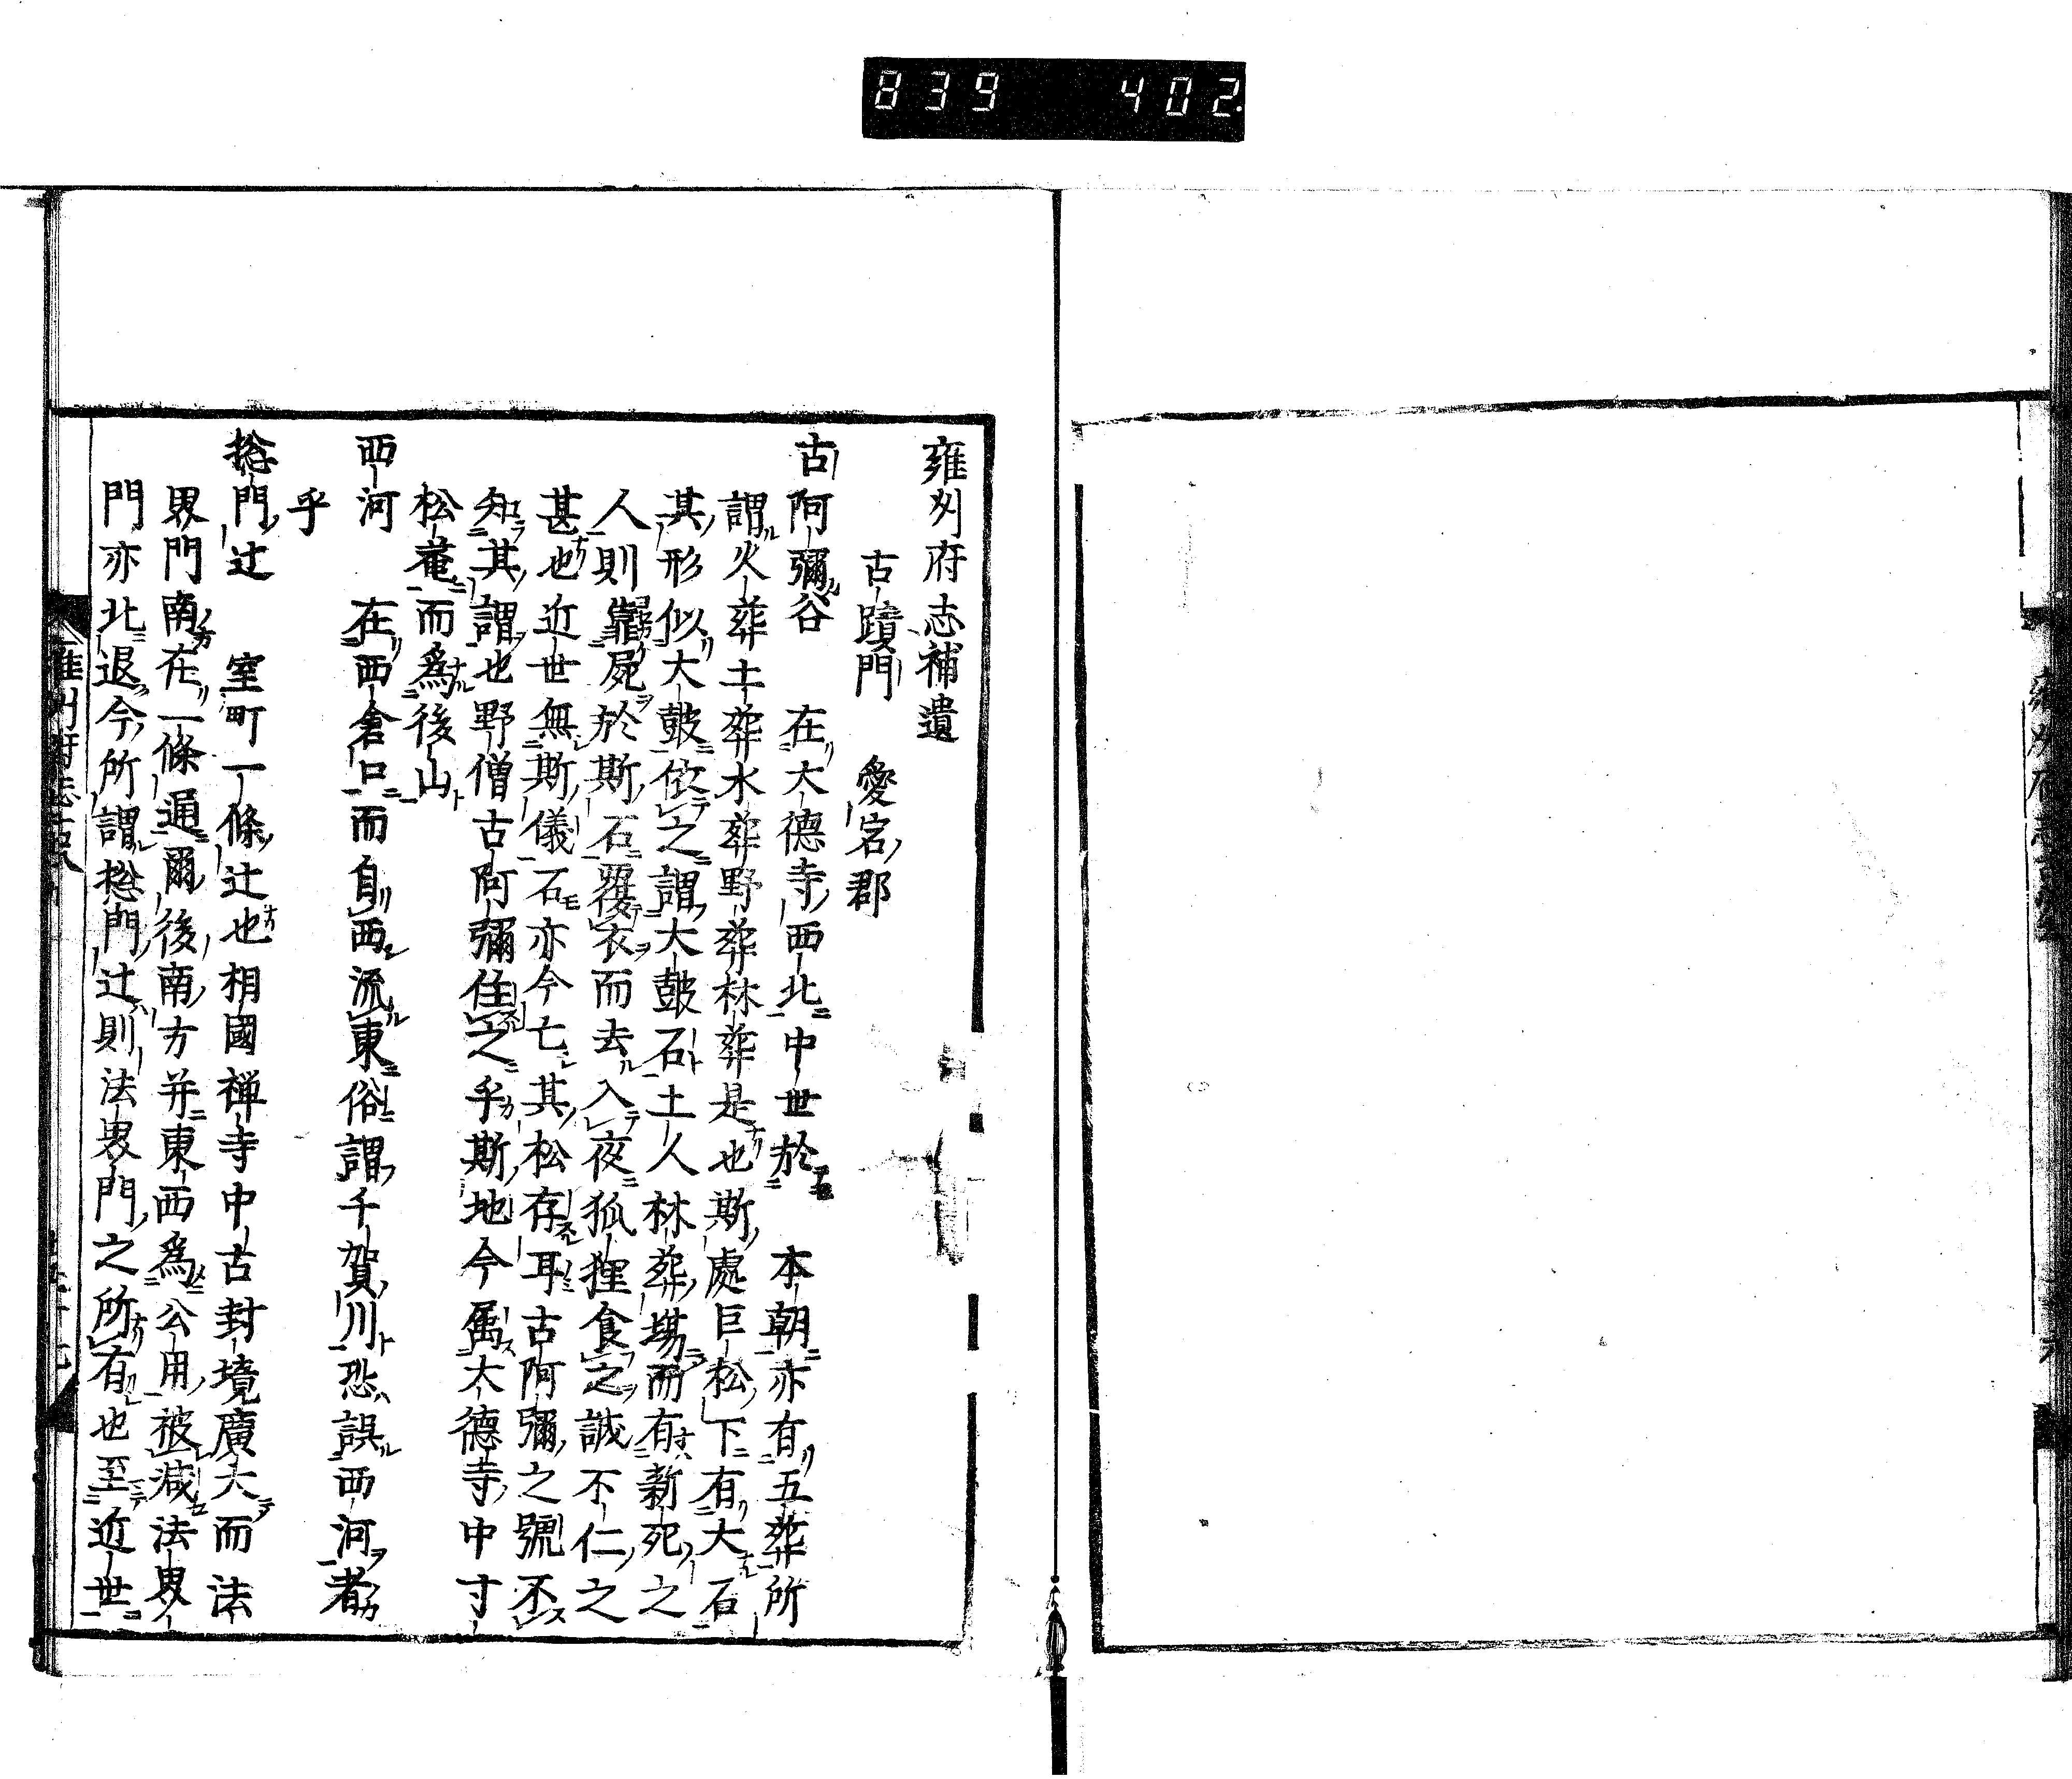 839 402
雍州府志補遺
古蹟門 愛宕郡
古阿彌谷 在大德寺西北中世於 本朝亦有五葬所
謂火葬土葬水葬野葬林葬是也斯處巨松下有大石
其形似大鼓依之謂大鼓石土人林葬場而有新死之
人則靠屍於斯石覆衣而去入夜狐狸食之誠不仁之
甚也近世無斯儀石亦今亡其松存耳古阿彌之號不
知其謂也野僧古阿彌住之乎斯地今属大德寺中寸
松菴而爲後山
西河 在西倉口而自西流東俗謂千賀川恐誤西河者
乎
捴門辻 室町一條辻也相國禅寺中古封境廣大而法
界門南在一條通爾後南方并東西爲公用被减法界
門亦北退今所謂捴門辻則法界門之所有也至近世